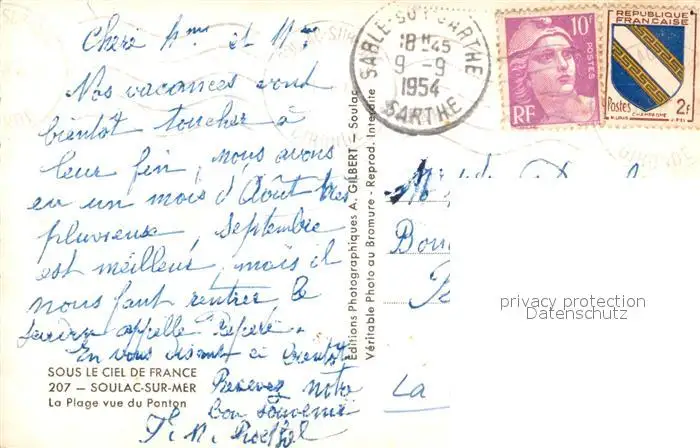 Chère Mme et Mr
Nos vacances vont
bientôt toucher à
leur fin, nous avons
eu un mois d'Août très
pluvieux, septembre
est meilleur, mais il
nous faut rentrer le
appelle
En vous disant à bientôt
Recevez notre
bon souvenir
SOUS LE CIEL DE FRANCE
207 — SOULAC-SUR-MER
La Plage vue du Ponton
Editions Photographiques A. GILBERT — Soulac
Véritable Photo au Bromure - Reprod. Interdite
SABLÉ-SUR-SARTHE
18H45
9 - 9
1954
SARTHE
10F
POSTES
RF
REPUBLIQUE FRANÇAISE
Postes 2F
CHAMPAGNE
La
privacy protection
Datenschutz